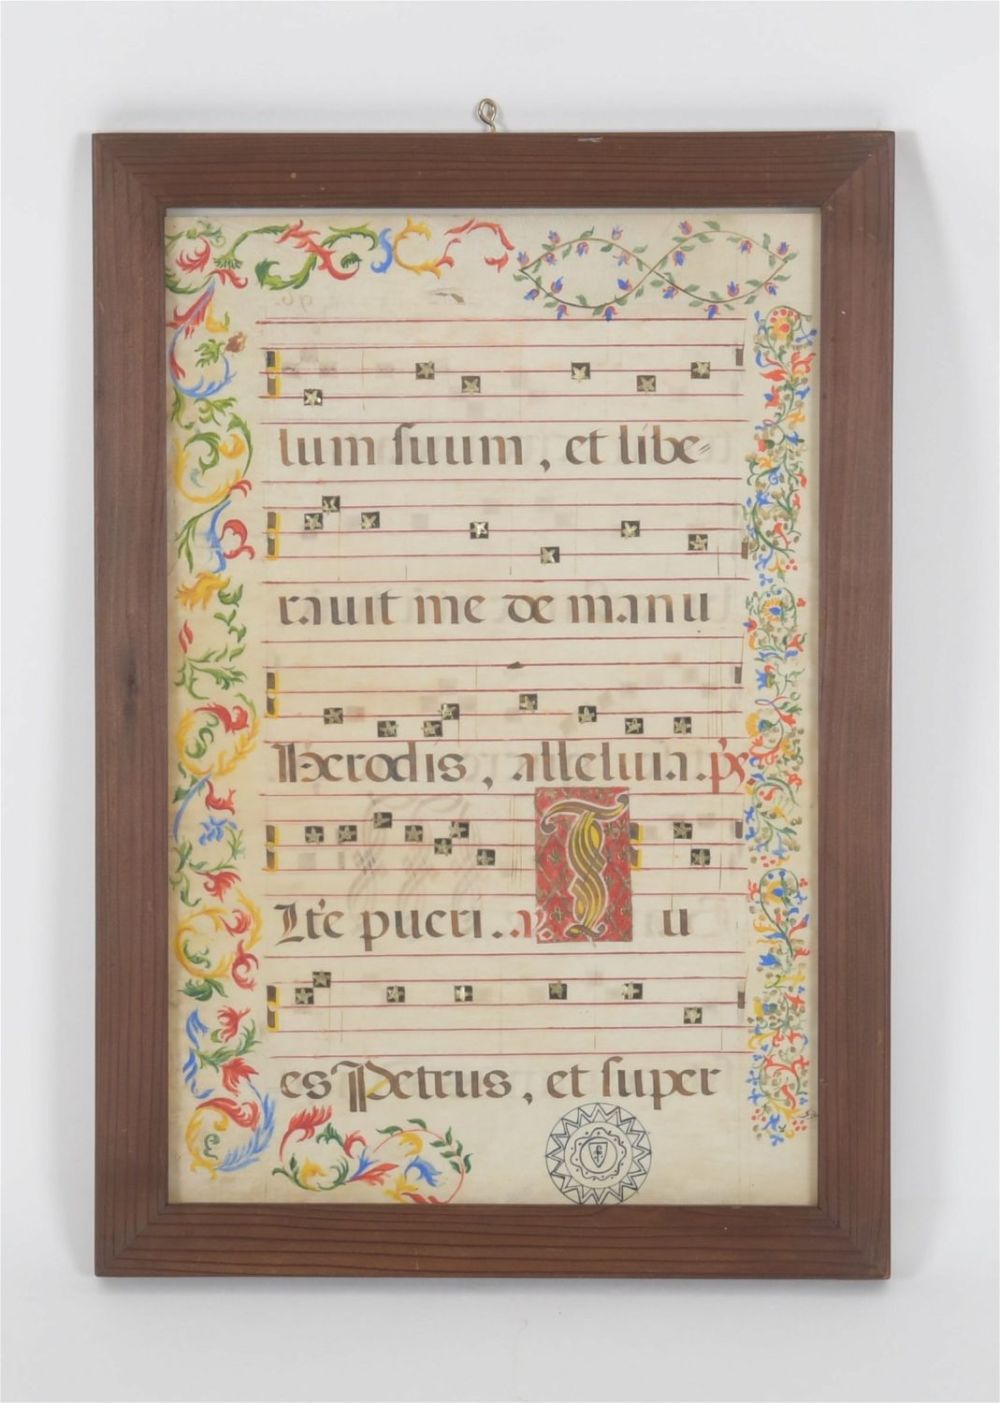 lum suum, et libe-
rauit me de manu
Herodis, alleluia. ps
Ite pueri. v. Tu
es Petrus, et super